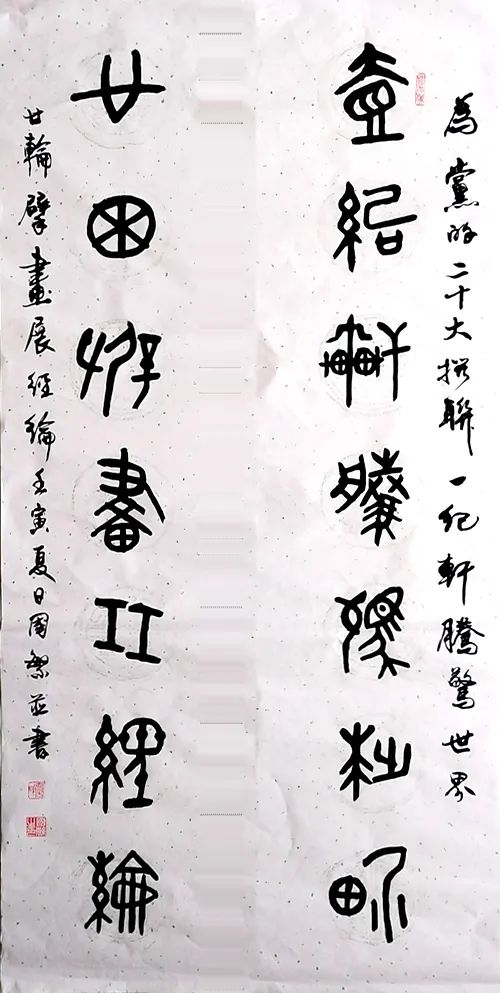 為黨的二十大撰聯一紀軒騰驚世界
壹紀軒騰驚世界
廿輪擘畫展經綸
廿輪擘畫展經綸壬寅夏日並書